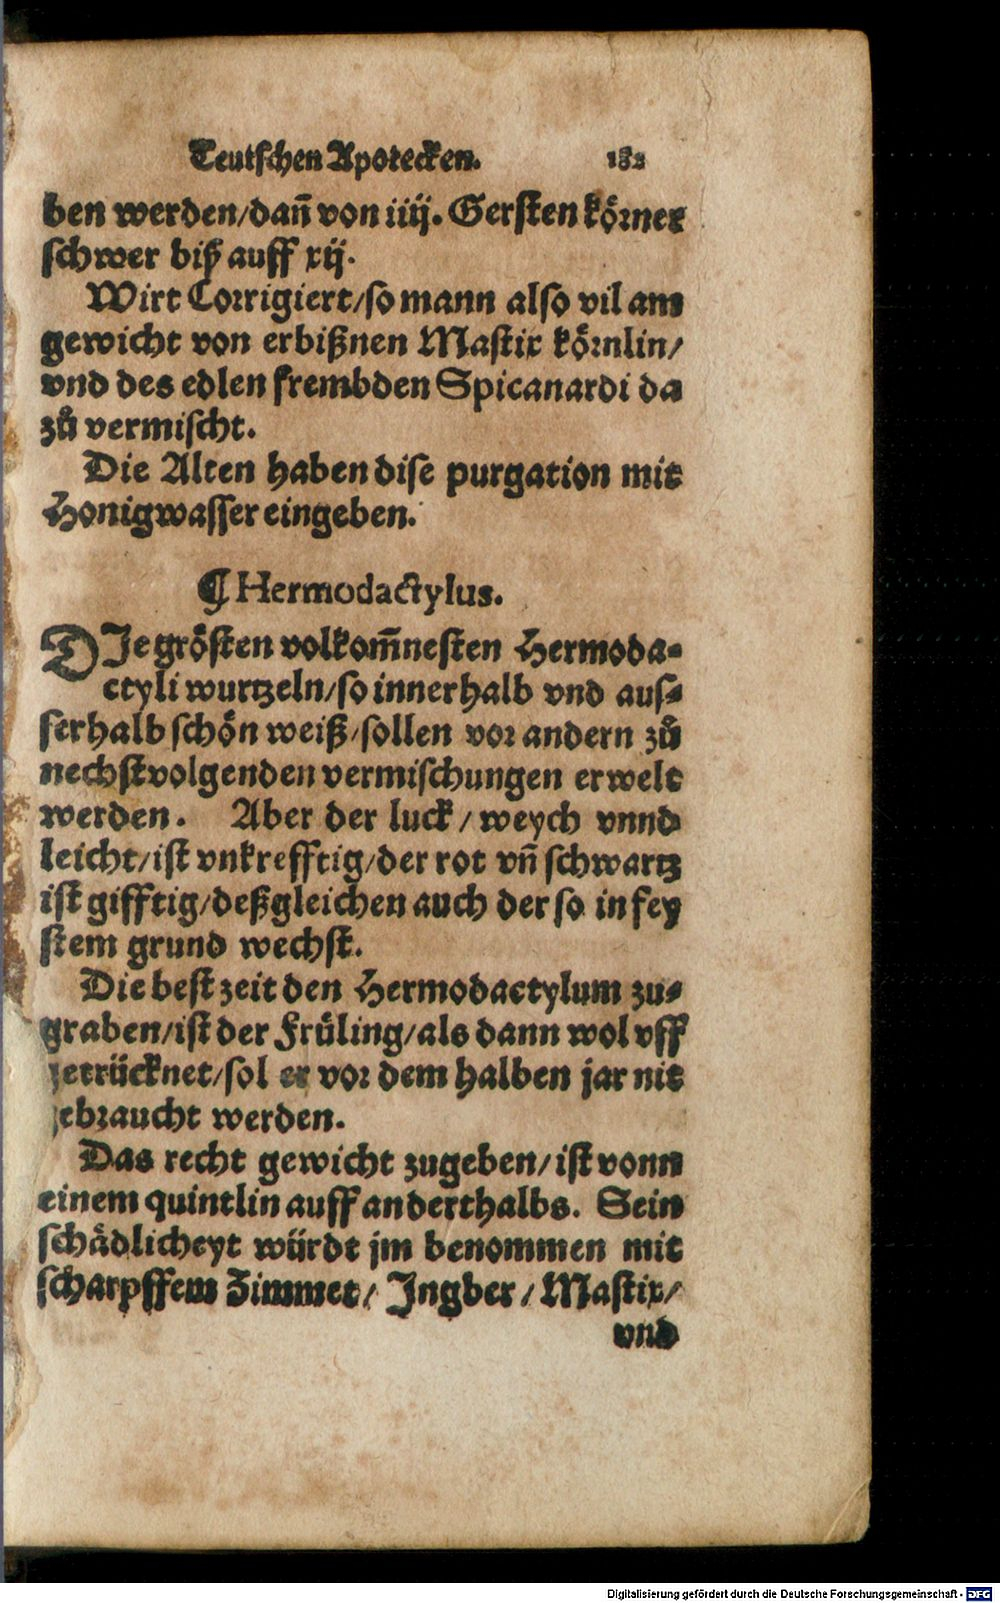 Teutschen Apotecken. 182
ben werden/dañ von iiij. Gersten körner
schwer biß auff xij.
Wirt Corrigiert/so mann also vil am
gewicht von erbißnen Mastix körnlin/
vnd des edlen frembden Spicanardi da
zů vermischt.
Die Alten haben dise purgation mit
Honigwasser eingeben.
¶ Hermodactylus.
DIe grösten volkom̃nesten Hermoda-
ctyli wurtzeln/so innerhalb vnd aus-
serhalb schön weiß/sollen vor andern zů
nechstvolgenden vermischungen erwelt
werden. Aber der luck/weych vnnd
leicht/ist vnkrefftig/der rot vñ schwartz
ist gifftig/deßgleichen auch der so in fey
stem grund wechst.
Die best zeit den Hermodactylum zu-
graben/ist der Früling/als dann wol vff
getrücknet/sol er vor dem halben jar nit
gebraucht werden.
Das recht gewicht zugeben/ist vonn
einem quintlin auff anderthalbs. Sein
schädlicheyt würdt jm benommen mit
scharpffem Zimmet/Ingber/Mastix/
vnd
Digitalisierung gefördert durch die Deutsche Forschungsgemeinschaft - DFG